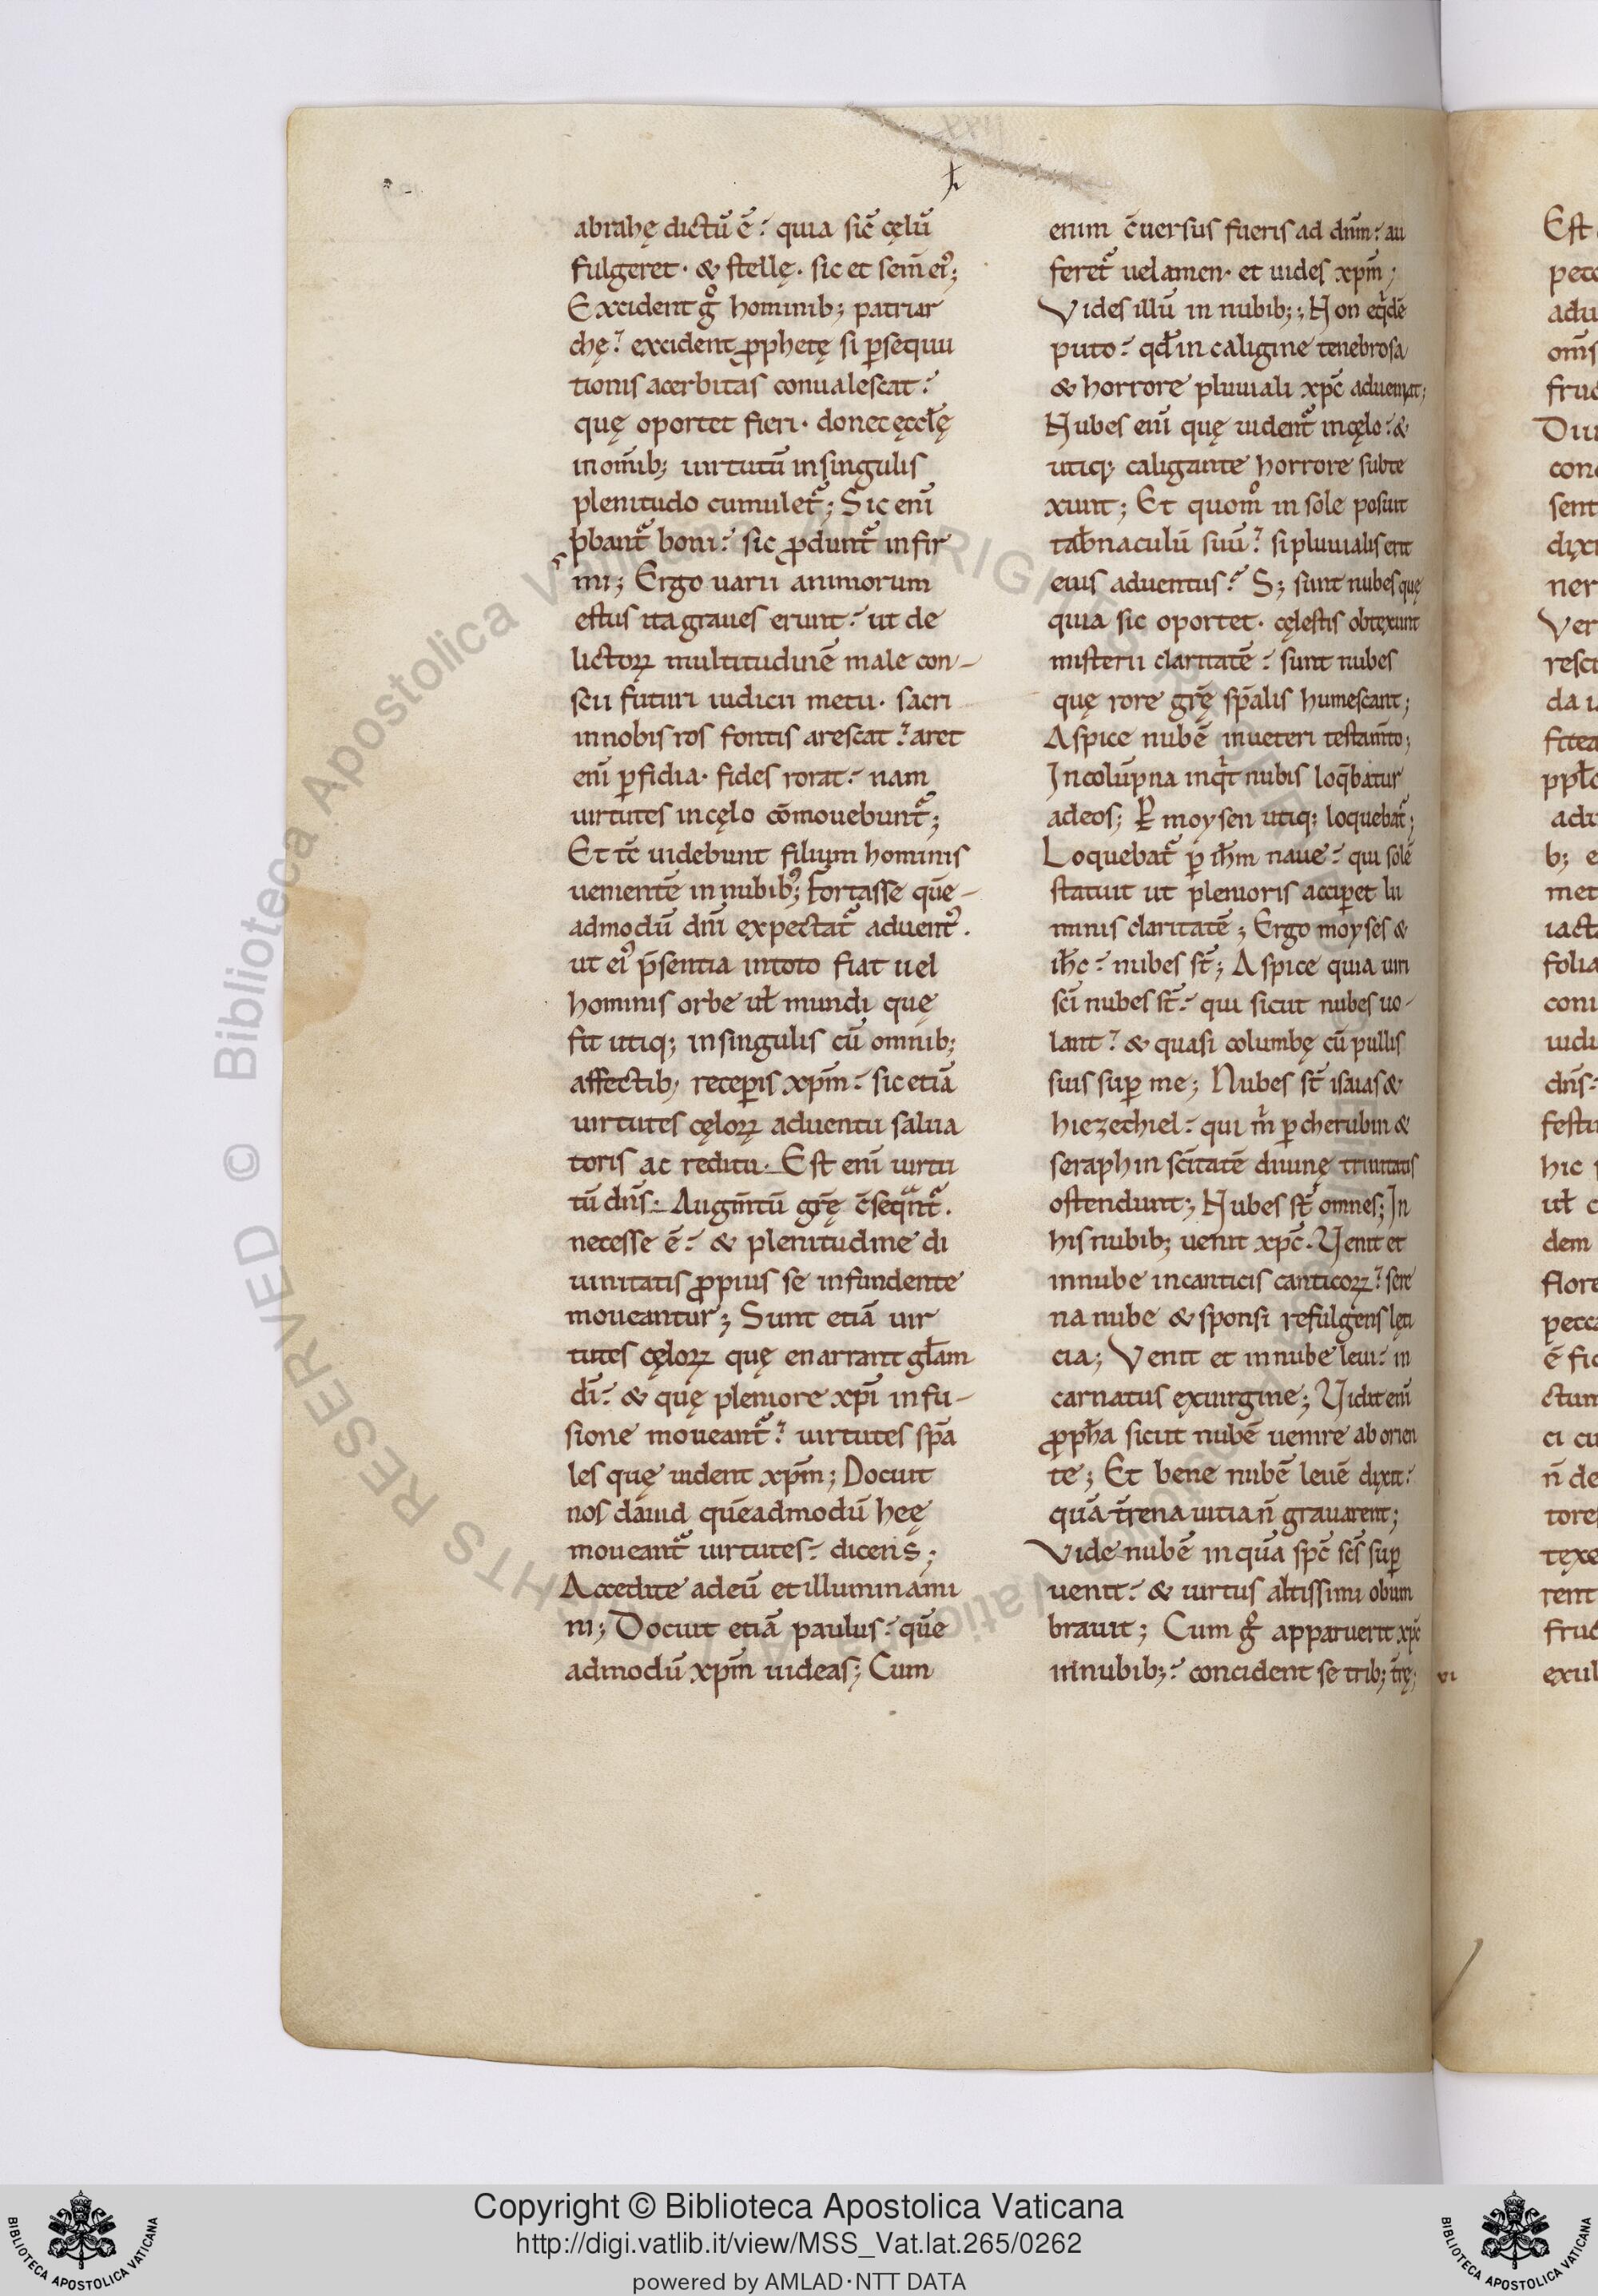 abrahę dictū ē. quia sic̄ cęlū
fulgeret. & stellę. sic et sem̄ ei᾿;
Excident g° hominib; patriar
chę. excident ꝓphetę si ꝑsequu
tionis acerbitas conualescat.
quę oportet fieri. donec ęccłę
in om̄ib; uirtutū in singulis
plenitudo cumulet᷑; Sic eni̅
ꝓbant᷑ boni. sic ꝓdunt᷑ infir
mi; Ergo uarii animorum
ęstus ita graues erunt. ut de
lictoꝝ multitudinē male con-
scii futuri iudicii metu. sacri
in nobis ros fontis arescat. aret
eni̅ ꝑfidia. fides rorat. nam
uirtutes in cęlo cōmouebunt᷑;
Et tc̄ uidebunt filium hominis
uenientē in nubib᾿; Fortasse quē-
admodū dn̄i expectat᷑ aduent᾿.
ut ei᾿ p̄sentia in toto fiat uel
hominis orbe uł mundi quę
fit utiq; in singulis cū omnib;
affectib; receꝑis xpm̄. sic etiā
uirtutes cęloꝝ aduentu salua
toris ac reditu. Est eni̅ uirtu
tū dn̄s. Augm̄tū gr̄ę c̄seqⁿt᷑.
necesse ē. & plenitudine di
uinitatis ꝓpius se infundente
moueantur; Sunt etiā uir
tutes cęloꝝ quę enarrant głam
di̅. & quę pleniore xpi̅ infu-
sione moueant᷑. uirtutes sp̄a
les quę uident xpm̄; Docuit
nos dauid quēadmodū heę
moueant᷑ uirtutes. dicens;
Accedite ad eū et illuminami
ni; Docuit etiā paulus. quē
admodū xpm̄ uideas; Cum
enim c̄uersus fueris ad dnm̄. au
feret᷑ uelamen. et uides xpm̄;
Vides illū in nubib;; Non eqⁱdē
puto. qđ in caligine tenebrosa
& horrore pluuiali xpc̄ adueniat;
Nubes eni̅ quę uident᷑ in cęlo. &
utiq; caligante horrore subte
xunt; Et quom° in sole posuit
tab̄naculū suū. si pluuialis erit
eius aduentus. S; sunt nubes quę
quia sic oportet. cęlestis obtexunt
misterii claritatē. sunt nubes
quę rore gr̄ę sp̄alis humescant;
Aspice nubē in ueteri testam̄to;
In colūpna inqⁱt nubis loq̄batur
ad eos; Ꝑ moysen utiq; loquebat᷑;
Loquebat᷑ ꝑ ih̄m naue. qui solē
statuit ut plenioris acciꝑet lu
minis claritatē; Ergo moyses &
ih̄c. nubes st̄; Aspice quia uiri
sc̄i nubes st̄. qui sicut nubes uo-
lant. & quasi columbę cū pullis
suis suꝑ me; Nubes st̄ isaias &
hiezechiel. qui mⁱ ꝑ cherubin &
seraphin sc̄itatē diuinę trinitatis
ostendunt; Nubes st̄ omnes; In
his nubib; uenit xpc̄. Venit et
in nube in canticis canticoꝝ. sere
na nube & sponsi refulgens lęti
cia; Venit et in nube leui. in
carnatus ex uirgine; Vidit eni̅
ꝓph̄a sicut nubē uenire ab orien
te; Et bene nubē leuē dixit.
quā t̄rena uitia n̄ grauarent;
Vide nubē in quā spc̄ sc̄s suꝑ
uenit. & uirtus altissimi obum
brauit; Cum g° apparuerit xpc̄
in nubib;. concident se trib; t̄rę;
vi
Copyright © Biblioteca Apostolica Vaticana
http://digi.vatlib.it/view/MSS_Vat.lat.265/0262
powered by AMLAD·NTT DATA